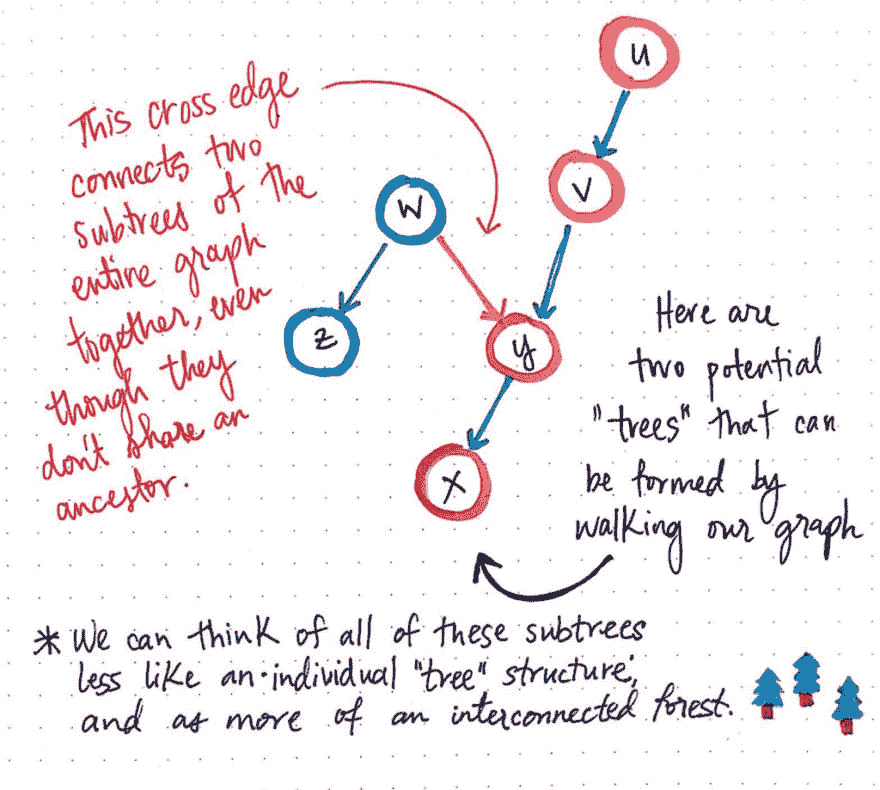 This cross edge
connects two
subtrees of the
entire graph
together, even
though they
don't share an
ancestor.
u
v
w
z
y
x
Here are
two potential
"trees" that can
be formed by
walking our graph
* We can think of all of these subtrees
less like an individual "tree" structure,
and as more of an interconnected forest.